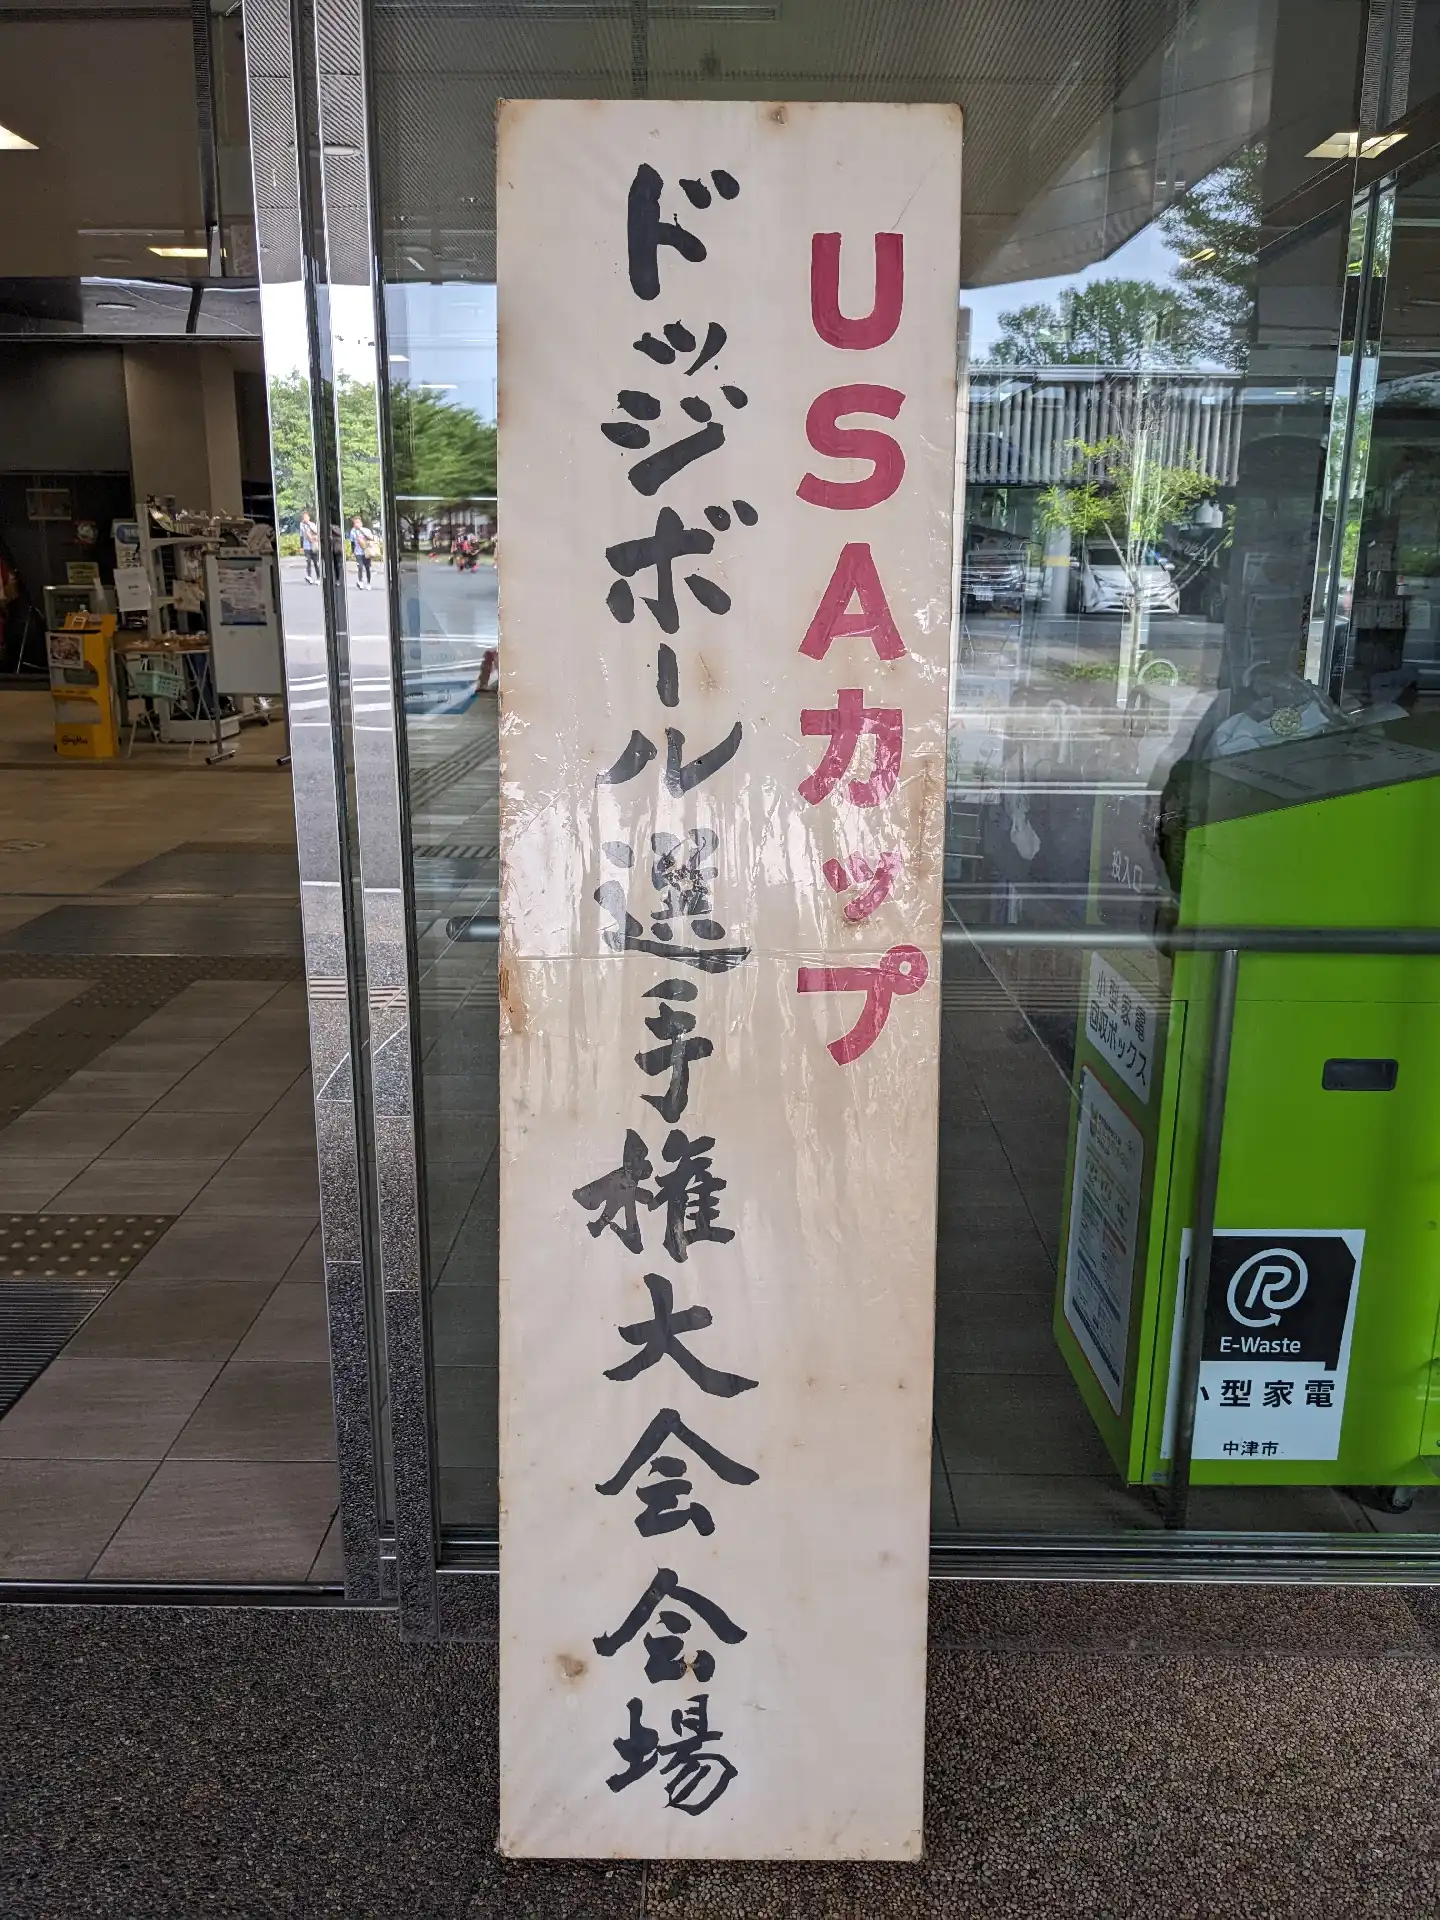 USAカップ
ドッジボール選手権大会会場
投入口
小型家電
回収ボックス
E-Waste
小型家電
中津市